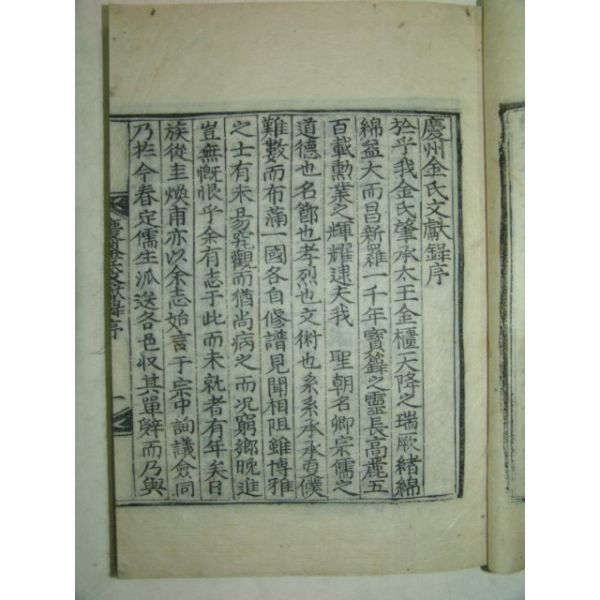 慶州金氏文獻錄序
於乎我金氏肇承太王金櫃天降之瑞厥緖綿
綿益大而昌新羅一千年寶籙之靈長高麗五
百載勳業之輝耀逮夫我 聖朝名卿宗儒之
道德也名節也孝烈也文術也系系承承壹僕
難數而布蒲一國各自修譜見聞相阻雖博雅
之士有未易究觀而猶尚病之而况窮鄉晚進
豈無慨恨乎余有志于此而未就者有年矣日
族從圭煥甫亦以余志始言于宗中詢議僉同
乃於今春定儒生派送各邑収其單辭而乃與
慶州金氏文獻錄 序